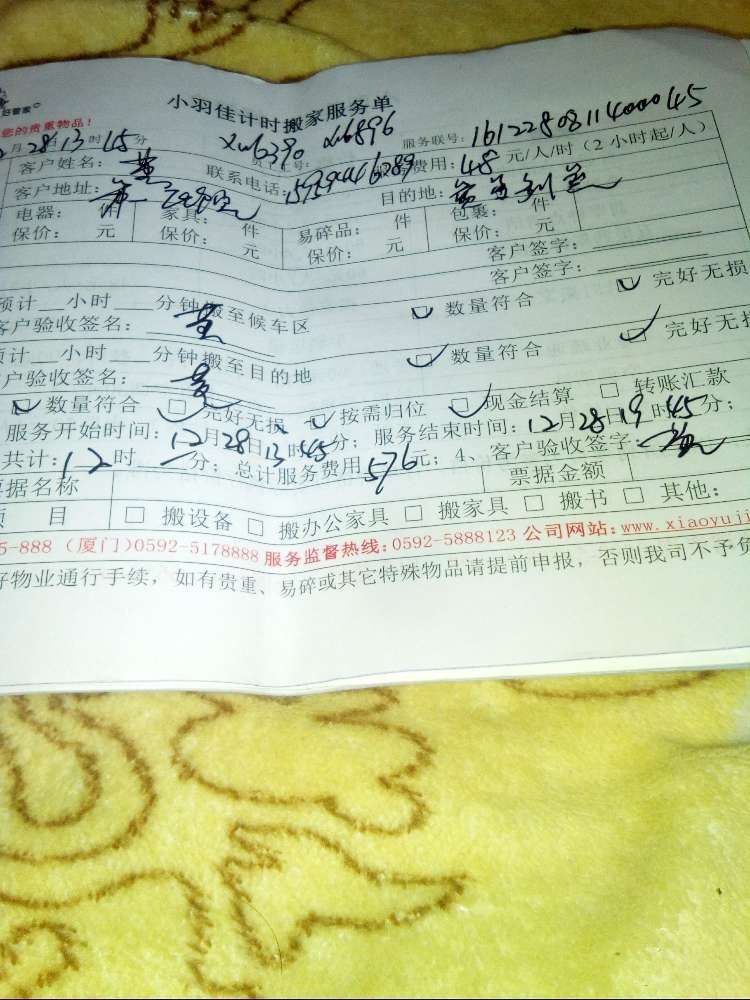 小羽佳计时搬家服务单
您的贵重物品！
月28日13时45分 xm6390 xm6896 服务联号：16122808114000045
客户姓名：黄 联系电话： 费用：48元/人/时（2小时起/人）
客户地址： 目的地：
电器： 件 家具： 件 易碎品 件 包裹： 件
保价： 元 保价： 元 保价： 元 保价： 元
客户签字：
客户签字：
预计 小时 分钟搬至候车区 数量符合 完好无损
客户验收签名：黄
预计 小时 分钟搬至目的地 数量符合 完好无损
户验收签名：黄
数量符合 完好无损 按需归位 现金结算 转账汇款
服务开始时间：12月28日13时45分；服务结束时间：12月28日19时45分；
共计：12时 分；总计服务费用576元；4、客户验收签字：
票据名称 票据金额
项 目 搬设备 搬办公家具 搬家具 搬书 其他：
5-888（厦门）0592-5178888 服务监督热线：0592-5888123 公司网站：www.xiaoyuji
好物业通行手续，如有贵重、易碎或其它特殊物品请提前申报，否则我司不予负